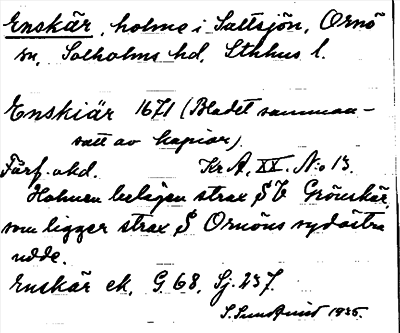 Enskär, holme i Saltsjön, Ornö
sn, Solholms hd, Sthlms l.
Enskiär 1671 (Bladet samman-
satt av kopior)
Förf. okd. Kr A, XX. No 13.
Holmen belägen strax S V Grönskär,
som ligger strax S Ornöns sydöstra
udde.
Enskär ek. G. 68, Sj. 237.
S. Sundquist 1935.